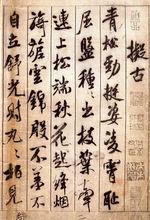 擬古
青松勁挺姿凌霄恥
屈盤種種出枝葉牽
連上松端秋花起絳煙
旖旎雲錦殷不羞不
自立舒光射丸丸柏見